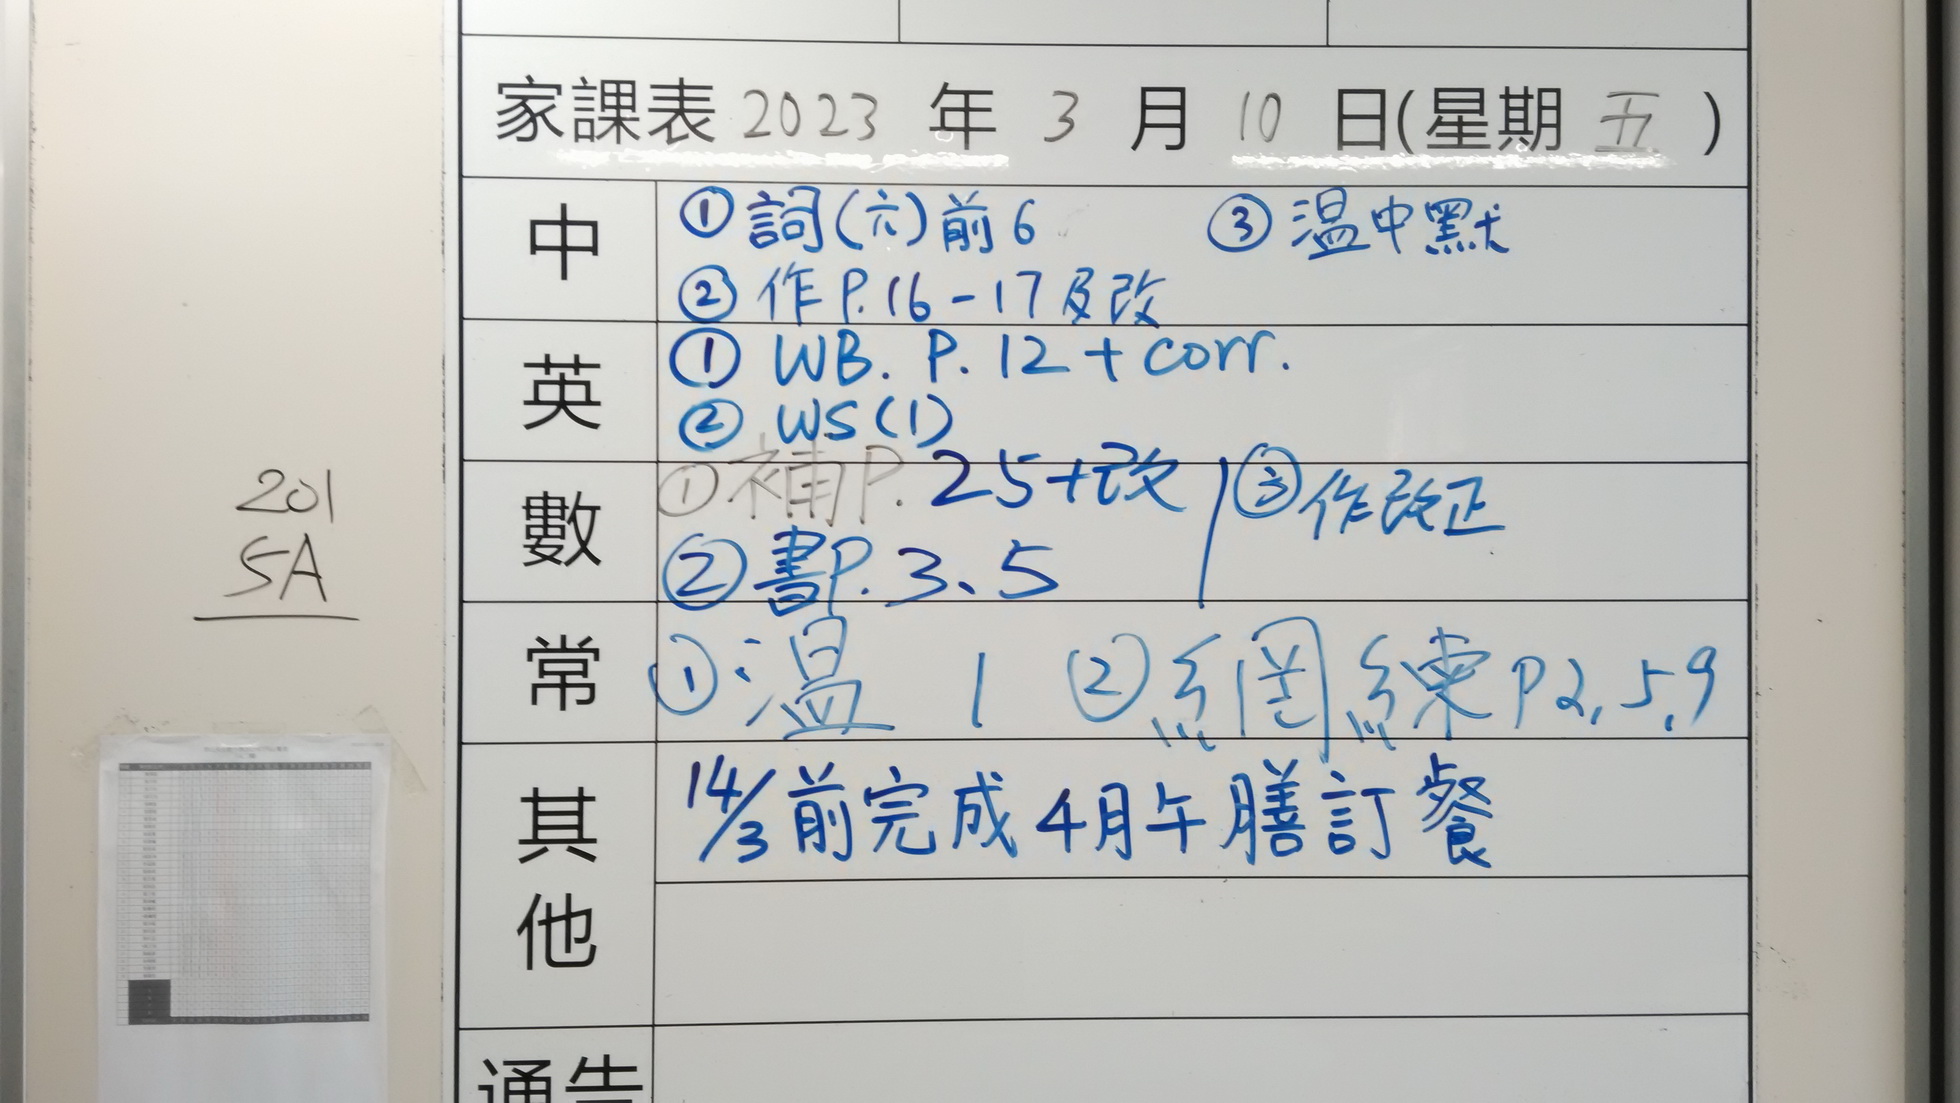 家課表 2023 年 3 月 10 日(星期 五 )
中
① 詞(六)前6 ③ 温中默
② 作P.16-17及改
英
① WB. P. 12 + corr.
② WS(1)
數
①補P. 25+改 ③作改正
②書P. 3、5
常
①温 1 ②網練 P2, 5, 9
其他
14/3前完成4月午膳訂餐
通告
201
5A